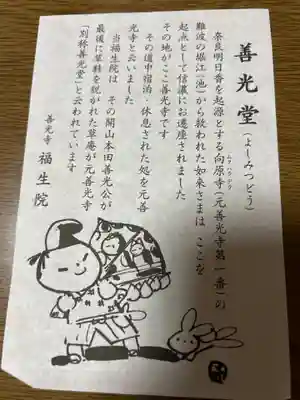 善光堂（よしみつどう）
奈良明日香を起源とする向原寺（元善光寺第一番）の
難波の堀江（池）から救われた如来さまは ここを
起点として信濃にお遷座されました
その地がここ善光寺です
その道中宿泊・休息された処を元善
光寺と云いました
当福生院は その開山本田善光公が
最後に草鞋を脱がれた草庵が元善光寺
「別称善光堂」と云われています
善光寺 福生院